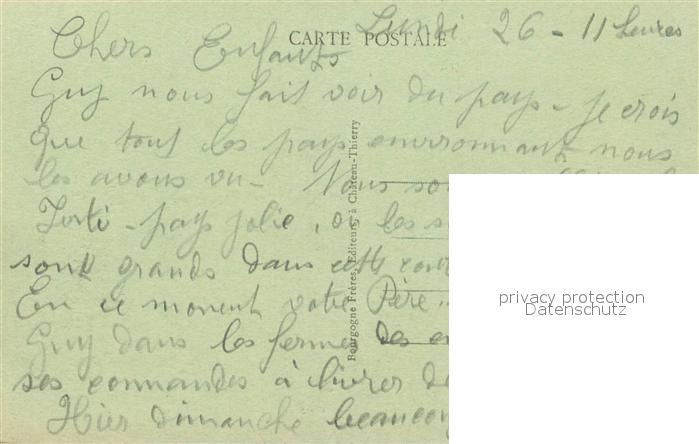 Lundi 26 - 11 heures
CARTE POSTALE
Chers Enfants
Guy nous fait voir du pays - je crois
que tout les pays environnant nous
les avons vu - Nous
- pays jolie, où les
sont grands dans cette
En ce moment votre Père
Guy dans les fermes des
ses commandes à livrer
Hier dimanche beaucou
Bourgogne Frères, Editeurs, à Château-Thierry
privacy protection
Datenschutz